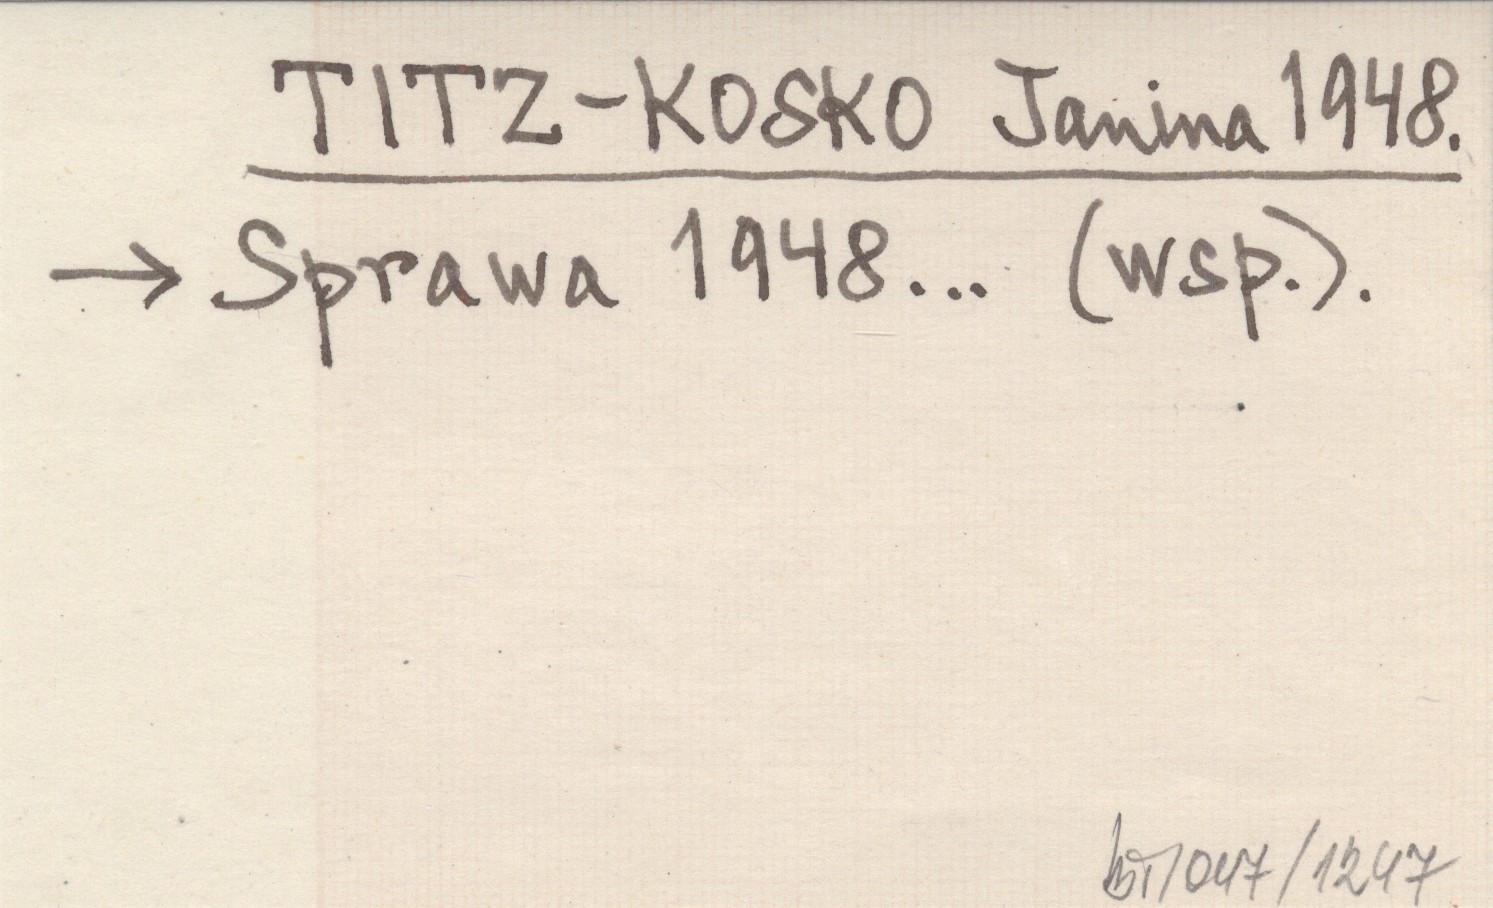 TITZ-KOSKO Janina 1948.
→ Sprawa 1948... (wsp.).
/047/1247